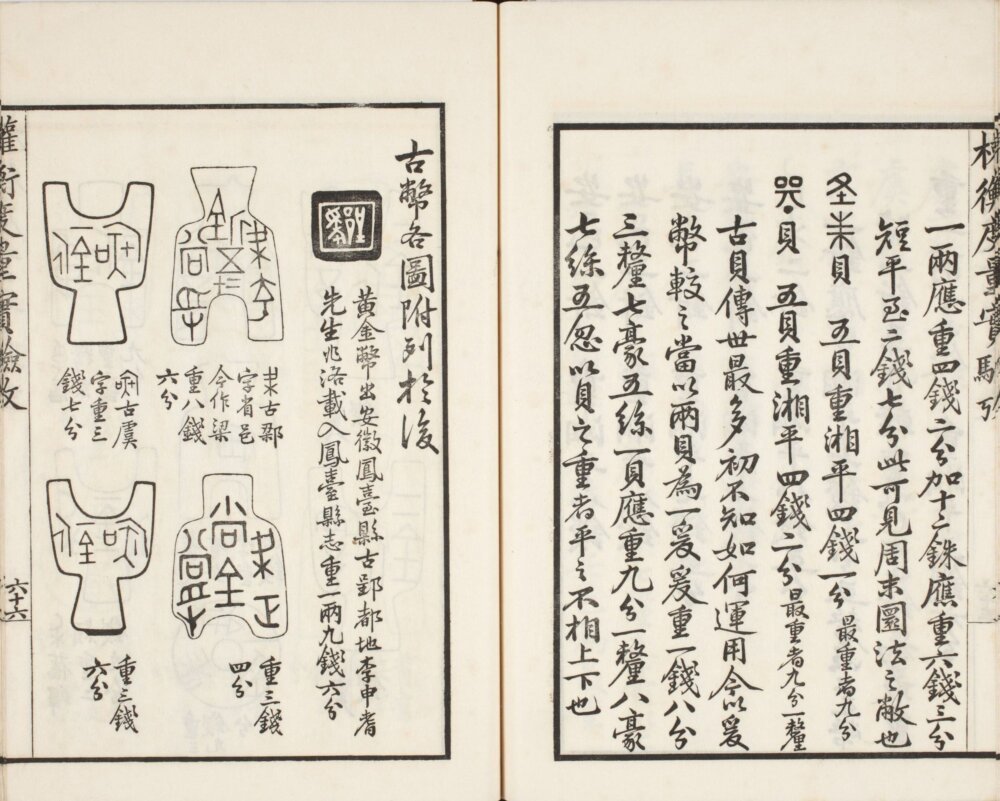 權衡度量實驗攷
一兩應重四錢二分加十二銖應重六錢三分
短平至二錢七分此可見周末圜法之敝也
貝 五貝重湘平四錢一分 最重者九分
貝 五貝重湘平四錢二分 最重者九分一釐
古貝傳世最多初不知如何運用今以爰
幣較之當以兩貝為一爰爰重一錢八分
三釐七豪五絲一貝應重九分一釐八豪
七絲五忽以貝之重者平之不相上下也
古幣各圖附列於後
黃金幣出安徽鳳臺縣古郢都地李申耆
先生兆洛載入鳳臺縣志重一兩九錢六分
古鄩
字省邑
今作梁
重八錢
六分
重三錢
四分
古虞
字重三
錢七分
重三錢
六分
權衡度量實驗攷
六十六